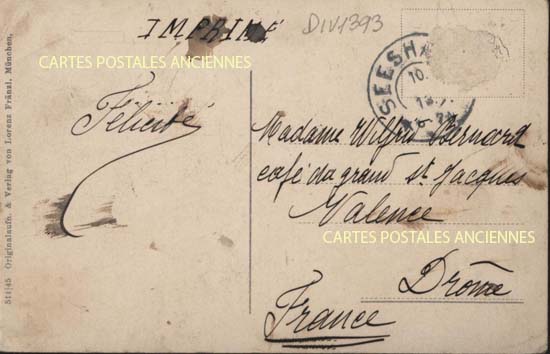 IMPRIMÉ
DIV1393
CARTES POSTALES ANCIENNES
SEESH
10.
Félicité
Madame Wilfrid Bernard
café du grand St Jacques
Valence
CARTES POSTALES ANCIENNES
Drôme
France
514/45 Originalaufn. & Verlag von Lorenz Fränzl, München.